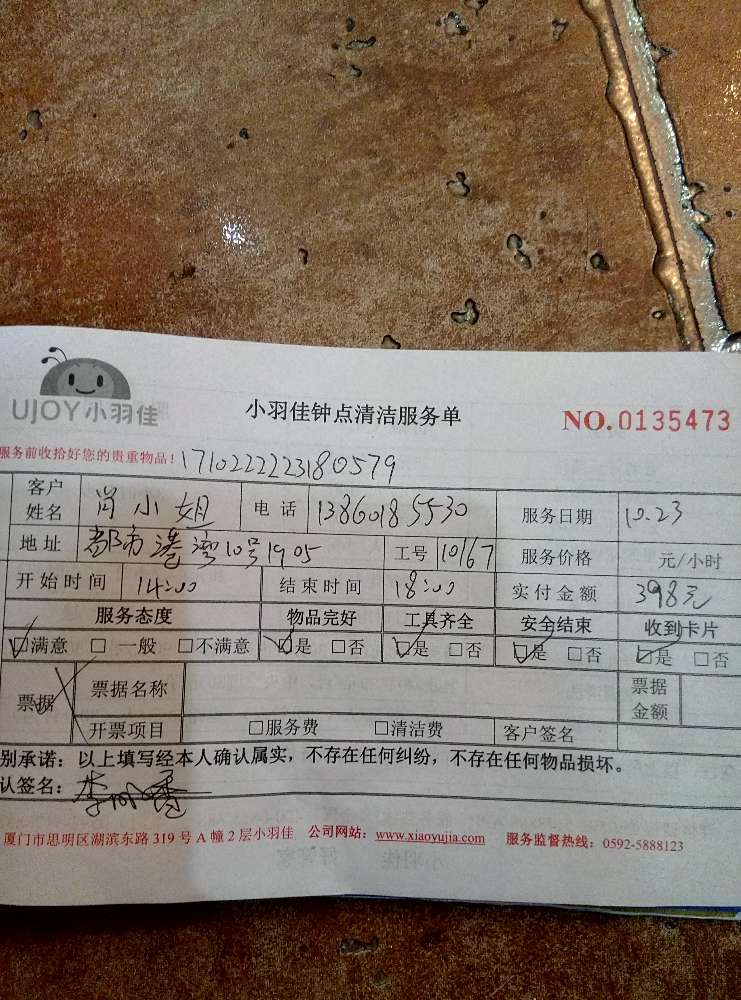 UJOY小羽佳
小羽佳钟点清洁服务单
NO.0135473
服务前收拾好您的贵重物品！1710222223180579
客户姓名 肖小姐 电话 13860185530 服务日期 10.23
地址 都市港湾10号1905 工号 10167 服务价格 元/小时
开始时间 14:00 结束时间 18:00 实付金额 398元
服务态度 物品完好 工具齐全 安全结束 收到卡片
☑满意 □一般 □不满意 ☑是 □否 ☑是 □否 ☑是 □否 ☑是 □否
票据 票据名称 票据金额
开票项目 □服务费 □清洁费 客户签名
别承诺：以上填写经本人确认属实，不存在任何纠纷，不存在任何物品损坏。
认签名：
厦门市思明区湖滨东路319号A幢2层小羽佳 公司网站：www.xiaoyujia.com 服务监督热线：0592-5888123